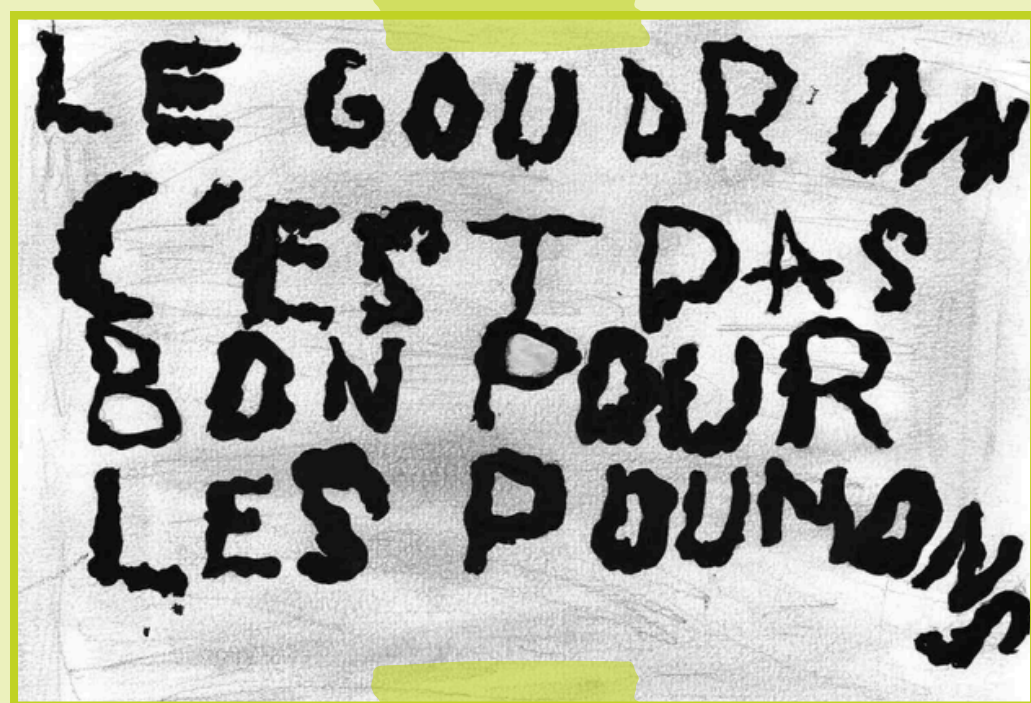 LE GOUDRON
C'EST PAS
BON POUR
LES POUMONS